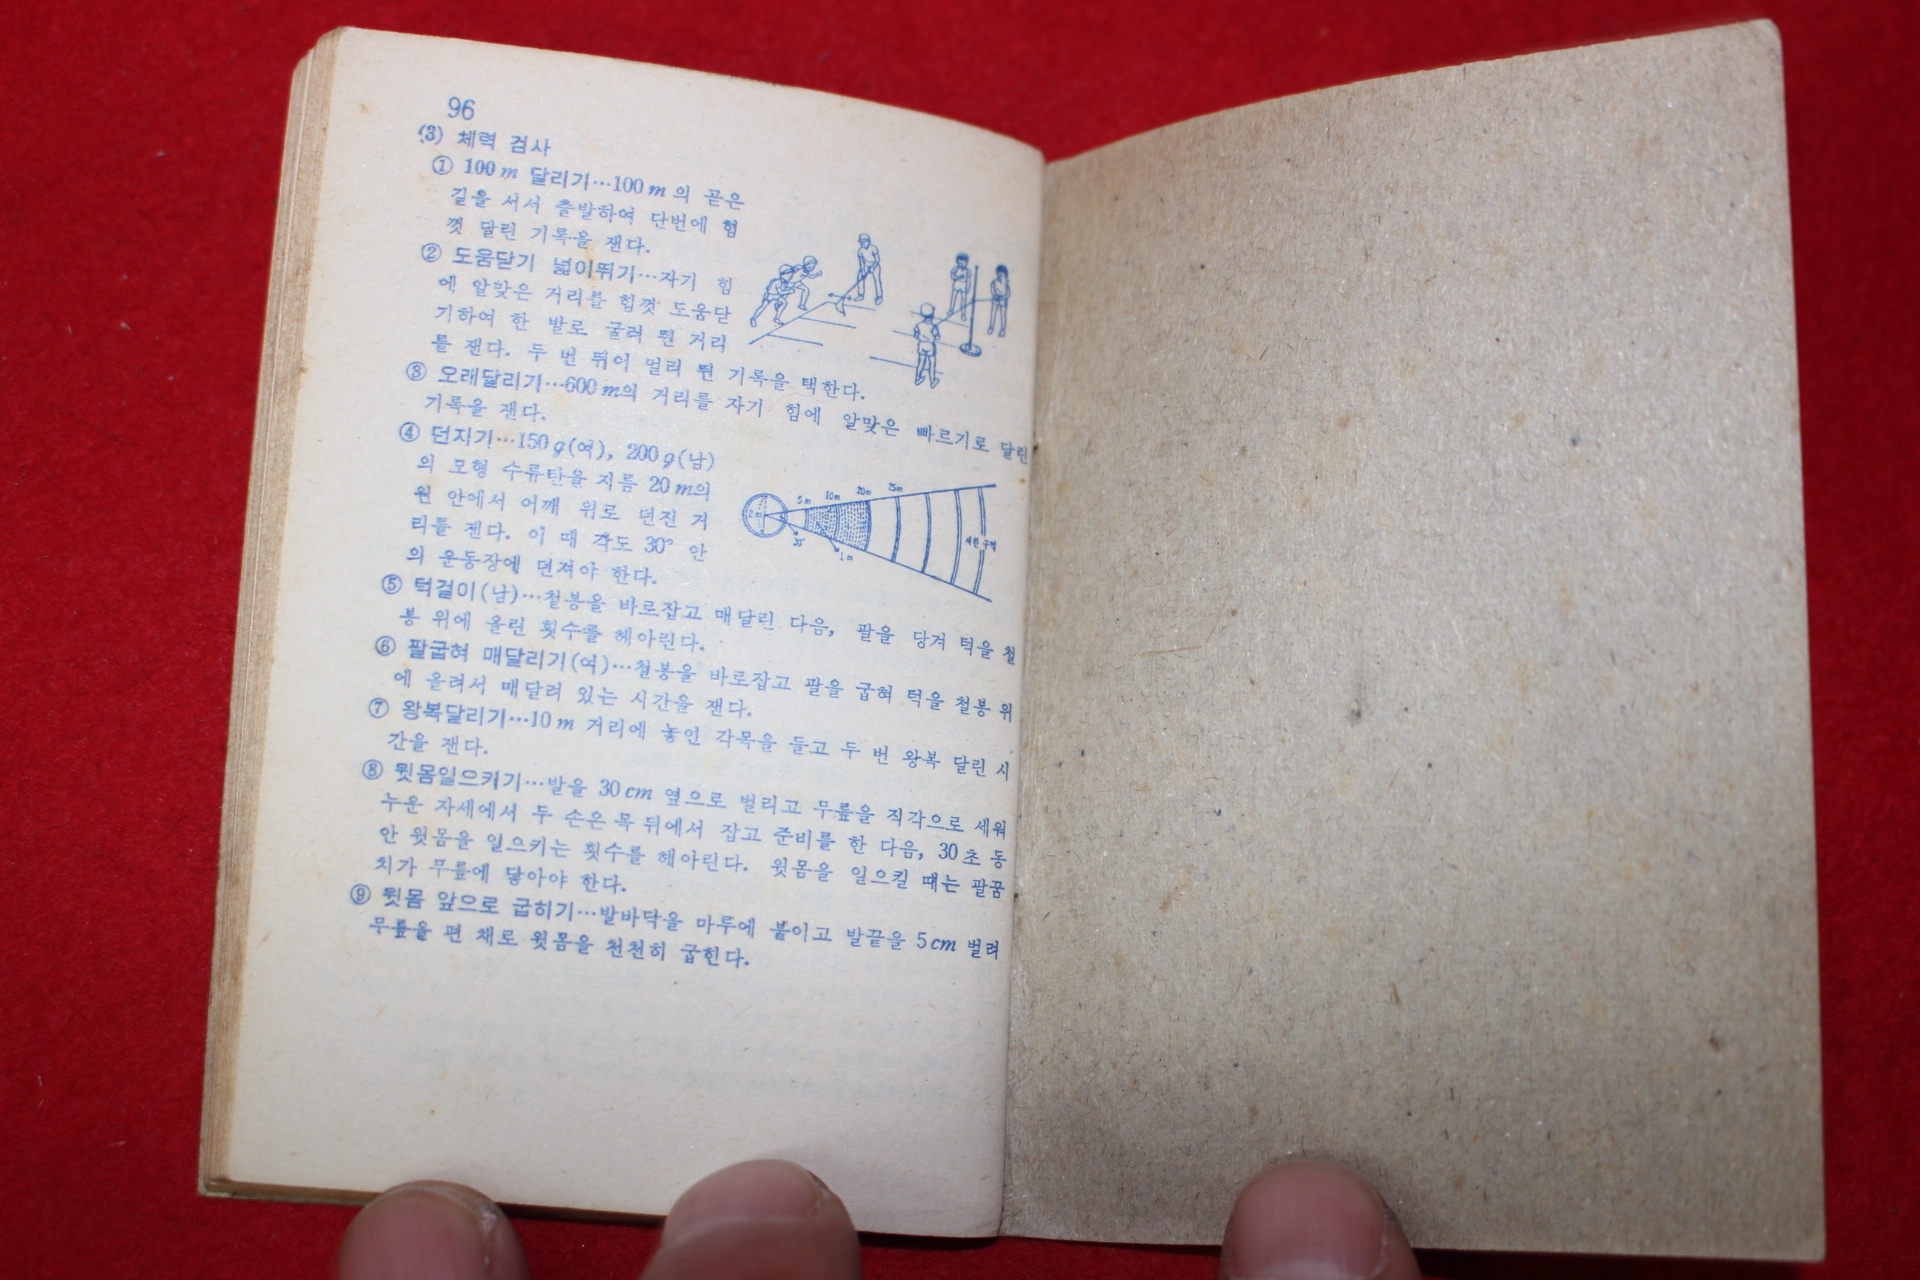 96
(3) 체력 검사
① 100m 달리기…100m의 곧은
길을 서서 출발하여 단번에 힘
껏 달린 기록을 잰다.
② 도움닫기 넓이뛰기…자기 힘
에 알맞은 거리를 힘껏 도움닫
기하여 한 발로 굴러 뛴 거리
를 잰다. 두 번 뛰어 멀리 뛴 기록을 택한다.
③ 오래달리기…600m의 거리를 자기 힘에 알맞은 빠르기로 달린
기록을 잰다.
④ 던지기…150g(여), 200g(남)
의 모형 수류탄을 지름 20m의
원 안에서 어깨 위로 던진 거
리를 잰다. 이 때 각도 30° 안
의 운동장에 던져야 한다.
2m
5m 10m 20m 25m
30°
1m
⑤ 턱걸이(남)…철봉을 바로잡고 매달린 다음, 팔을 당겨 턱을 철
봉 위에 올린 횟수를 헤아린다.
⑥ 팔굽혀 매달리기(여)…철봉을 바로잡고 팔을 굽혀 턱을 철봉 위
에 올려서 매달려 있는 시간을 잰다.
⑦ 왕복달리기…10m 거리에 놓인 각목을 들고 두 번 왕복 달린 시
간을 잰다.
⑧ 윗몸일으켜기…발을 30cm 옆으로 벌리고 무릎을 직각으로 세워
누운 자세에서 두 손은 목 뒤에서 잡고 준비를 한 다음, 30초 동
안 윗몸을 일으키는 횟수를 헤아린다. 윗몸을 일으킬 때는 팔꿈
치가 무릎에 닿아야 한다.
⑨ 윗몸 앞으로 굽히기…발바닥을 마루에 붙이고 발끝을 5cm 벌려
무릎을 편 채로 윗몸을 천천히 굽힌다.